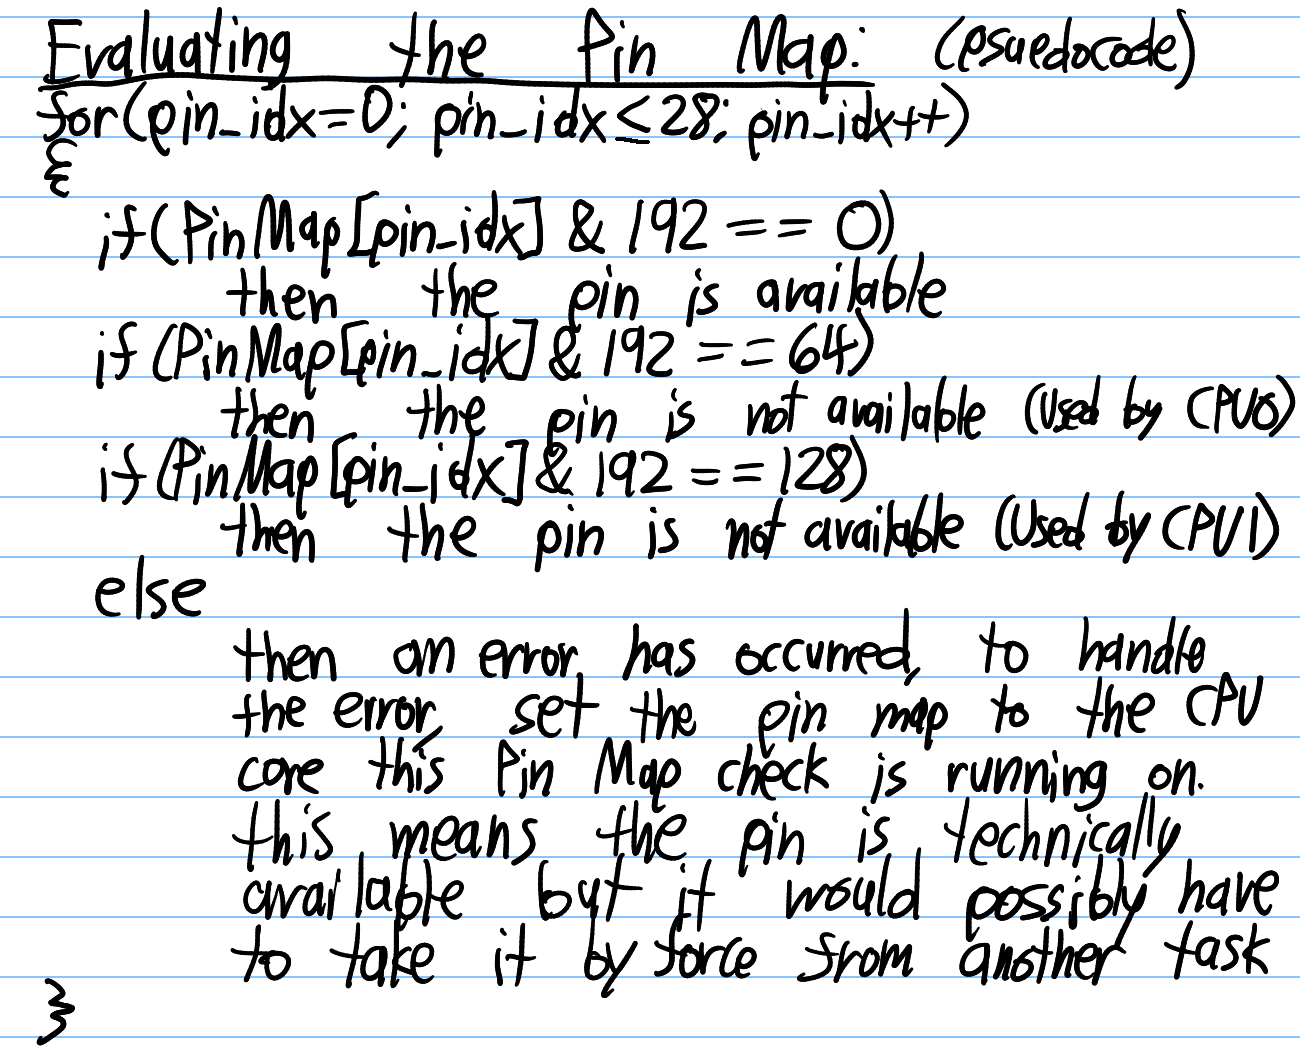 Evaluating the Pin Map: (psuedocode)
for(pin_idx=0; pin_idx≤28; pin_idx++)
{
if(PinMap[pin_idx] & 192 == 0)
then the pin is available
if(PinMap[pin_idx] & 192 == 64)
then the pin is not available (Used by CPU0)
if(PinMap[pin_idx] & 192 == 128)
then the pin is not available (Used by CPU1)
else
then an error has occurred, to handle
the error, set the pin map to the CPU
core this Pin Map check is running on.
this means the pin is technically
available but it would possibly have
to take it by force from another task
}